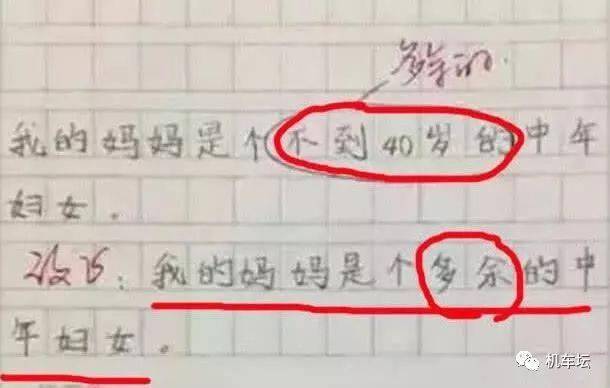 多余的.
我的妈妈是个不到40岁的中年
妇女。
改为：我的妈妈是个多余的中
年妇女。
机车坛